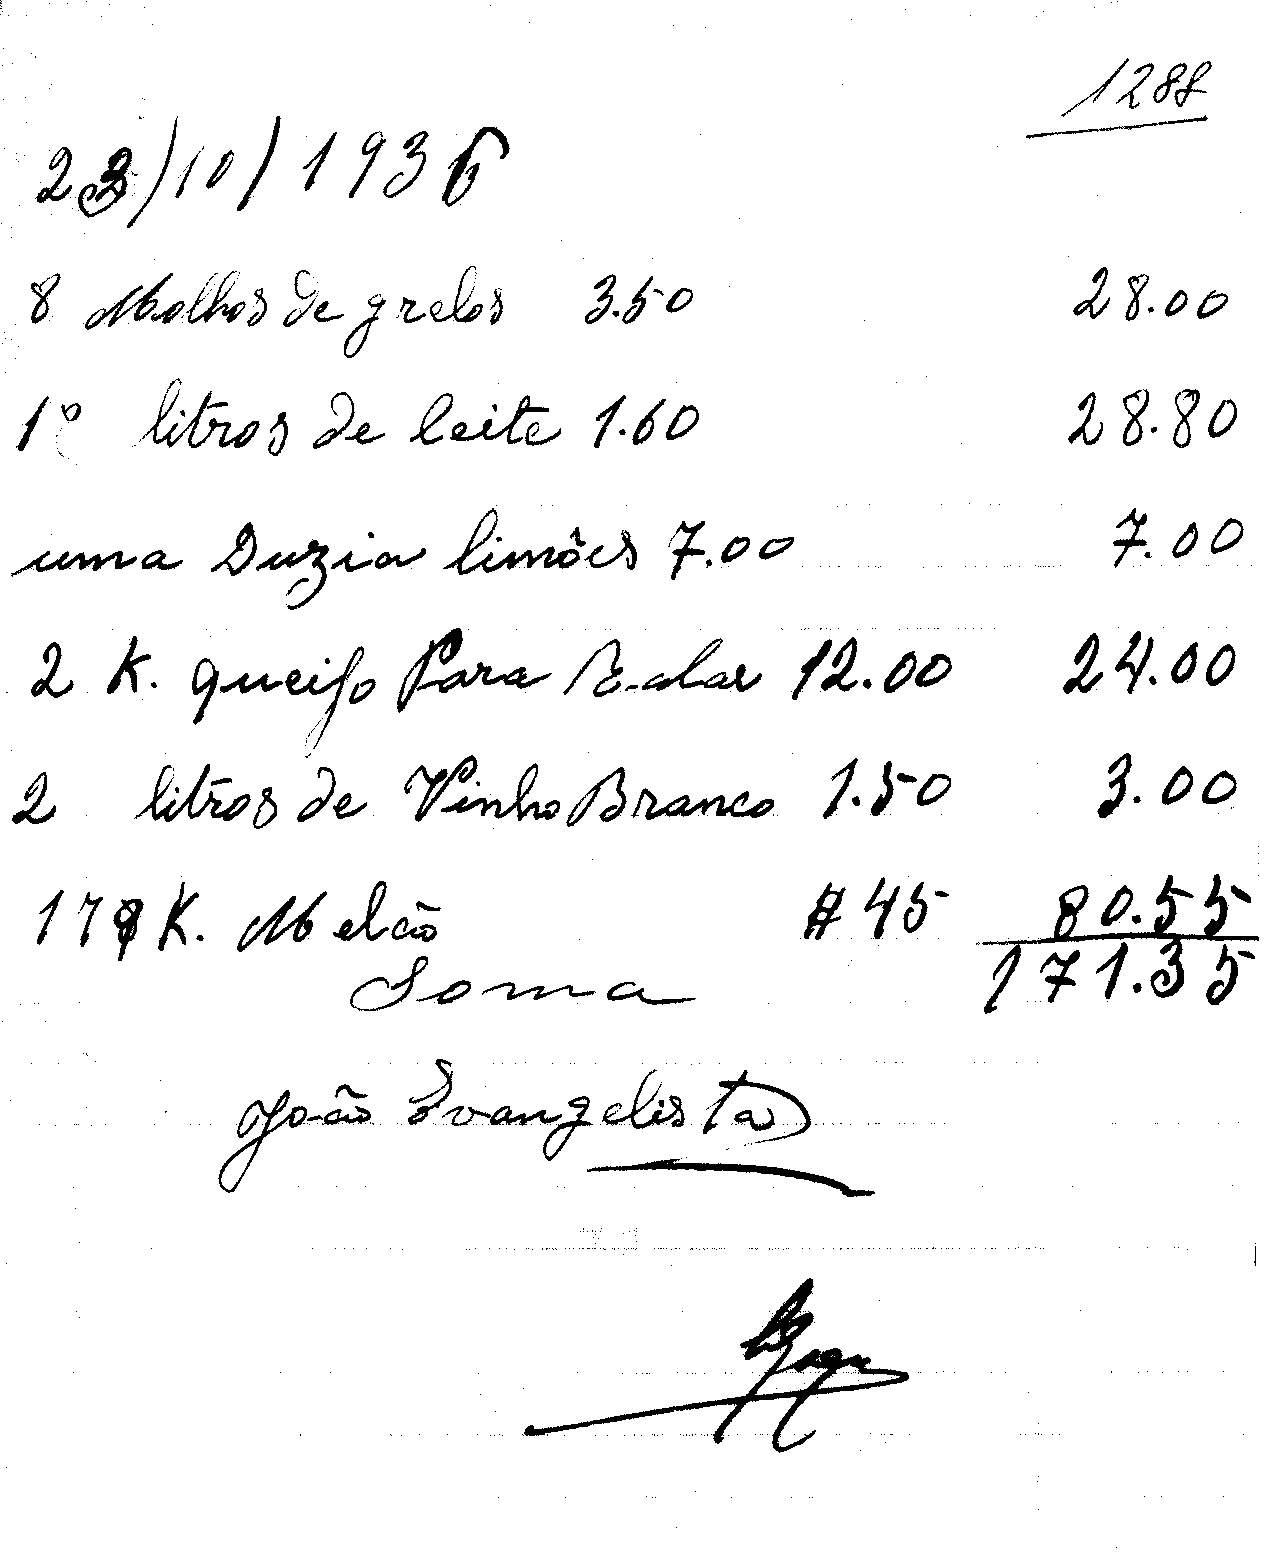 1288
23/10/1936
8 Molhos de grelos 3.50 28.00
18 litros de leite 1.60 28.80
uma Duzia limões 7.00 7.00
2 K. queijo Para Ralar 12.00 24.00
2 litros de Vinho Branco 1.50 3.00
179 K. Melão #45 80.55
Soma 171.35
João Evangelista